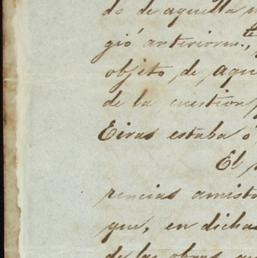 do de aquella
gió anteriorm.te,
objeto de aque
de la cuestion
Eiras estaba ó
El
rencias amisto
que, en dichas
de las obras, que